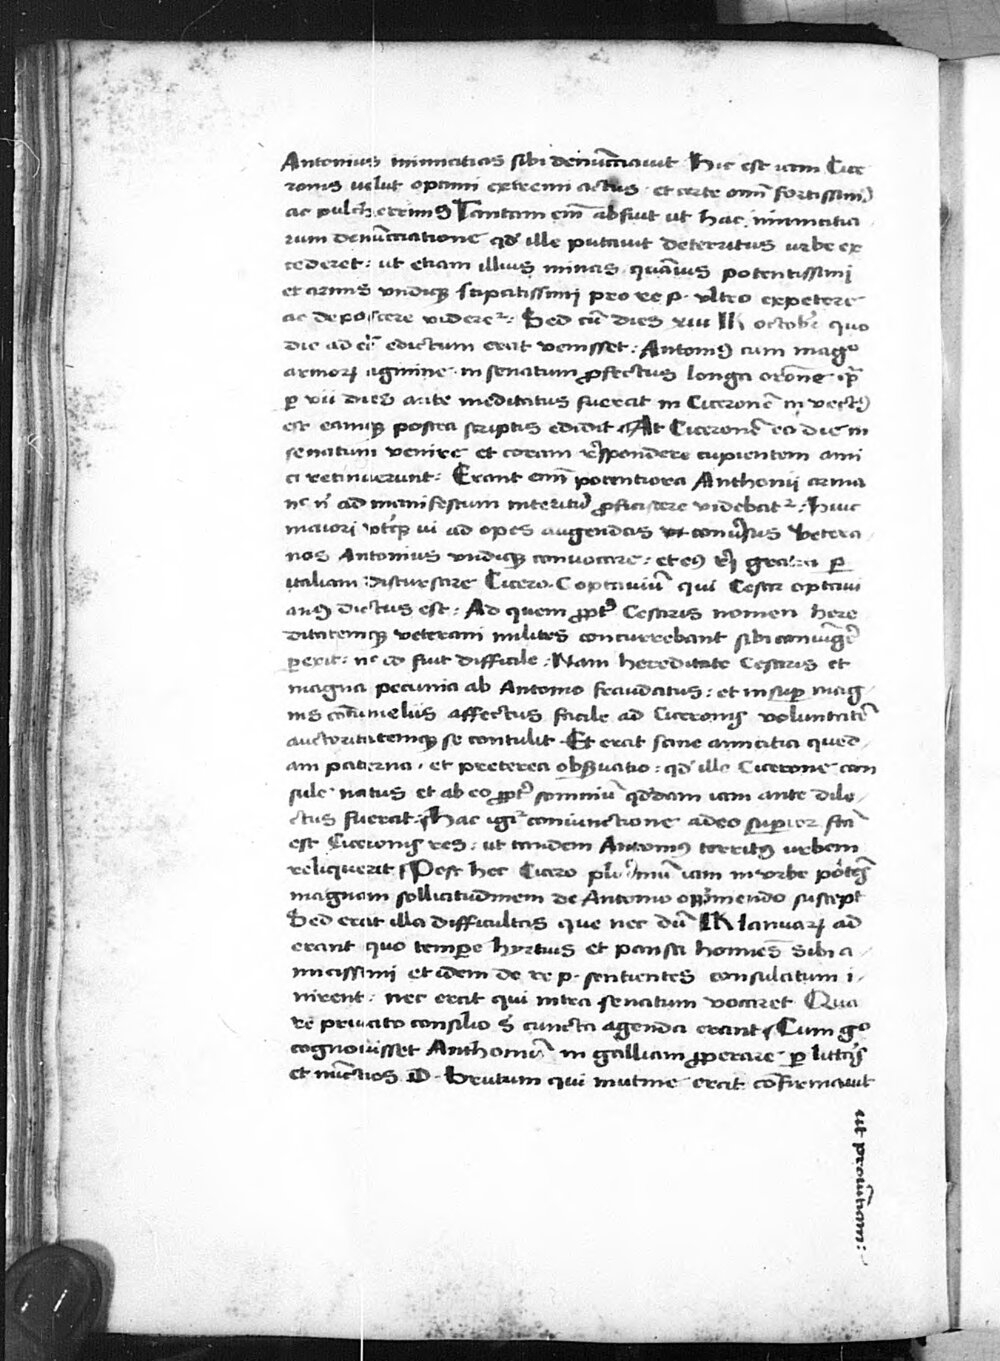 Antonius inimicitias sibi denūtiauit Hic est iam Cice
ronis uelut optimi extremi actus et certe omīi fortissimꝰ
ac pulcherrimꝰ Tantam em̄ abfuit ut hac inimicitia
rum denūtiatione qd̕ ille putauit deterritus urbe ex
cederet: ut etiam illius minas quāuis potentissimi
et armis vndiqꝫ stipatissimi pro re p. vltro expetere
ac deposcere videret᷑: Sed cū dies xiii kl̄ octobr̄ quo
die ad eū edictum erat venisset: Antoniꝰ cum magº
armoꝝ agmine in senatum ꝓfectus longa orōne ip̄a
ꝑ vii dies ante meditatus fuerat in Ciceronē inuectꝰ
est eamqꝫ postea scriptis edidit At Ciceronē ea die in
senatum venire et coram respondere cupientem ami
ci retinuerunt: Erant em̄ potentiora Anthonii arma
nc̄ n̄ ad manifestum interitū ꝓficiscere videbat᷑: Huic
maiori vtiqꝫ ui ad opes augendas conuersus Vetera
nos Antonius vndiqꝫ conuocare: et eiꝰ rei gratia ꝑ
italiam discursare Cicero. C optauiū qui Cesar optaui
anꝰ dictus est: Ad quem ꝓpt̄ Cesaris nomen here
ditatemqꝫ veterani milites concurrebant sibi coniūgere
ꝑexit: nc̄ eo fuit difficile: Nam hereditate Cesaris et
magna pecunia ab Antonio fraudatus: et insuꝑ mag
nis cōtumeliis affectus facile ad Ciceronis voluntatē
auctoritatemqꝫ se contulit Et erat sane amicitia qued
am paterna. et preterea obseruatio: qd̕ ille Cicerone con
sule natus et ab eo ꝓpt̄ somniū qd̕dam iam ante dile
ctus fuerat Hac igit᷑ coniunctione adeo superior fcā
est Ciceronis res: ut tandem Antoniꝰ territꝰ urbem
reliquerit Post hec Cicero plurimū iam in vrbe potēs
magnam sollicitudinem de Antonio opprimendo suscepit
Sed erat illa difficultas que nec dū kl̄ Ianuaꝝ ad
erant quo tempore hyrtius et pansa homiēs sibi a
micissimi et idem de re p. sentientes consulatum i
nirent: nec erat qui intra senatum vocaret Qua
re priuato consilio s̄ cuncta agenda erant Cum gº
cognouisset Anthoniū in galliam ꝓperare ꝑ litteris
et nūctios D. Brutum qui mutine erat confirmauit
ut prouītiam: